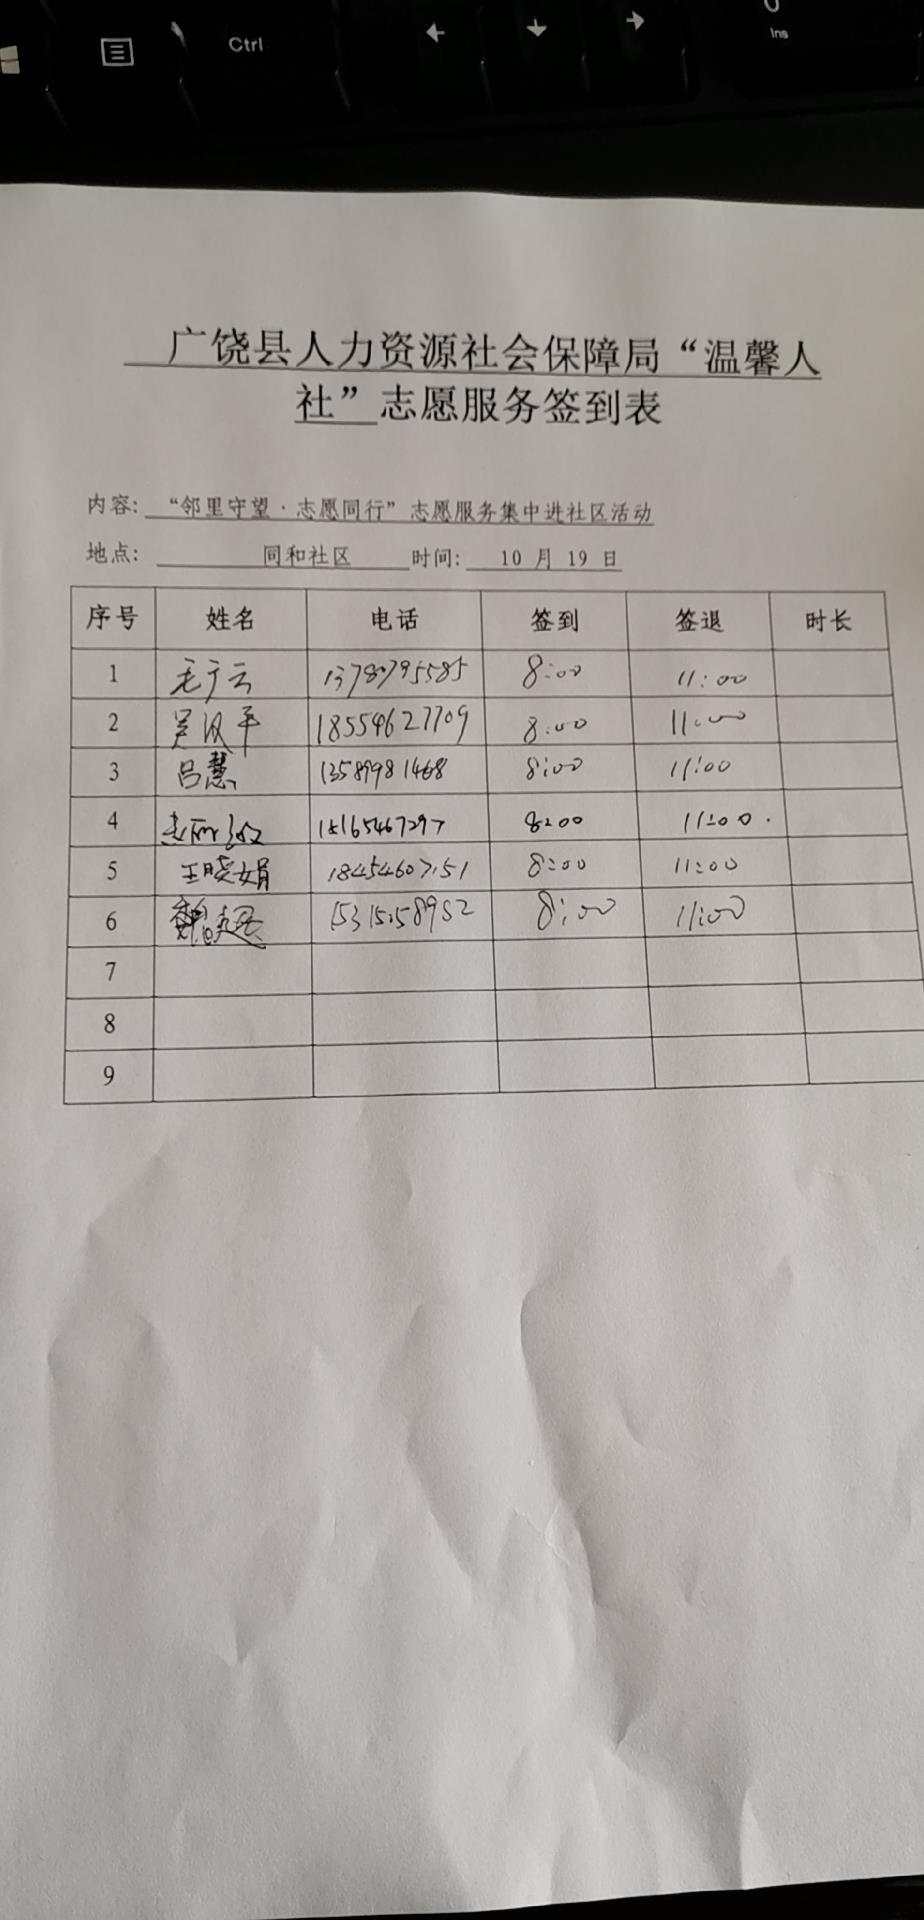 Ctrl
Ins
广饶县人力资源社会保障局“温馨人
社”志愿服务签到表
内容: “邻里守望·志愿同行”志愿服务集中进社区活动
地点: 同和社区 时间: 10 月 19 日
序号 姓名 电话 签到 签退 时长
1 毛于云 13780795585 8:00 11:00
2 18554627709 8:00 11:00
3 吕慧 13589981468 8:00 11:00
4 8:00 11:00.
5 王晓娟 8:00 11:00
6 8:00 11:00
7
8
9